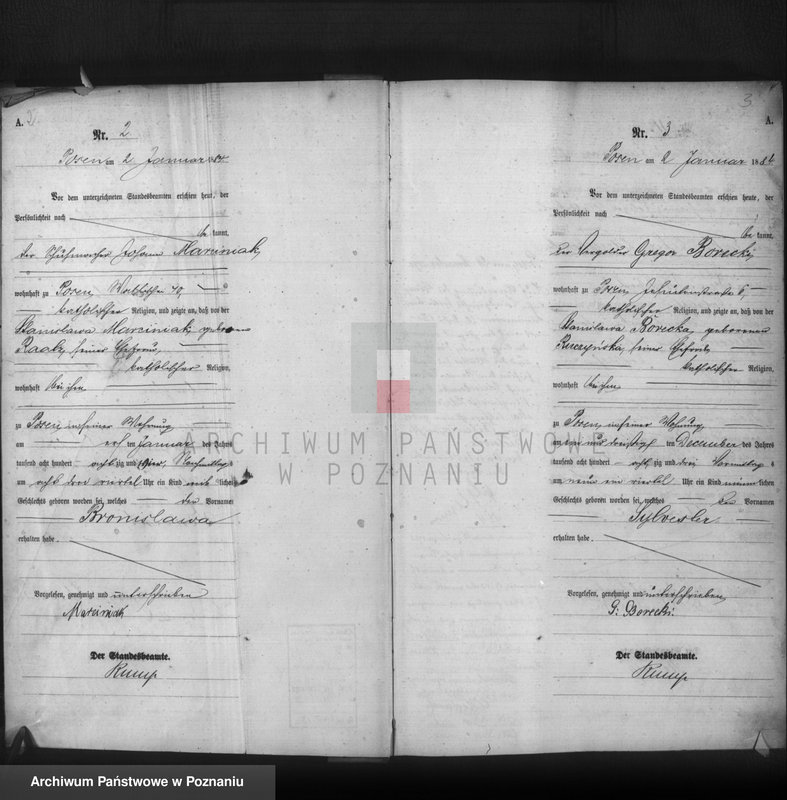 A.
Nr. 2
Posen am 2 Januar 1884
Vor dem unterzeichneten Standesbeamten erschien heute, der
Persönlichkeit nach
be kannt,
der Schuhmacher Johann Marciniak,
wohnhaft zu Posen,
katholischer Religion, und zeigte an, daß von der
Stanislawa Marciniak geborenen
seiner Ehefrau,
katholischer Religion,
wohnhaft bei ihm
zu Posen in seiner Wohnung
am ersten Januar des Jahres
tausend acht hundert achtzig und vier, Nachmittag
um acht drei viertel Uhr ein Kind weiblichen
Geschlechts geboren worden sei, welches den Vornamen
Bronislawa
erhalten habe.
Vorgelesen, genehmigt und unterschrieben
Marciniak
Der Standesbeamte.
3
A.
Nr. 3
Posen am 2 Januar 1884
Vor dem unterzeichneten Standesbeamten erschien heute, der
Persönlichkeit nach
be kannt,
der Vergolder Gregor Borecki,
wohnhaft zu Posen,
katholischer Religion, und zeigte an, daß von der
Stanislawa Borecka, geborenen
seiner Ehefrau
katholischer Religion,
wohnhaft bei ihm
zu Posen, in seiner Wohnung,
am ein und dreißigsten December des Jahres
tausend acht hundert achtzig und drei Vormittag
um neun ein viertel Uhr ein Kind männlichen
Geschlechts geboren worden sei, welches den Vornamen
Sylvester
erhalten habe.
Vorgelesen, genehmigt und unterschrieben
G: Borecki:
Der Standesbeamte.
ARCHIWUM PAŃSTWOWE
W POZNANIU
Archiwum Państwowe w Poznaniu